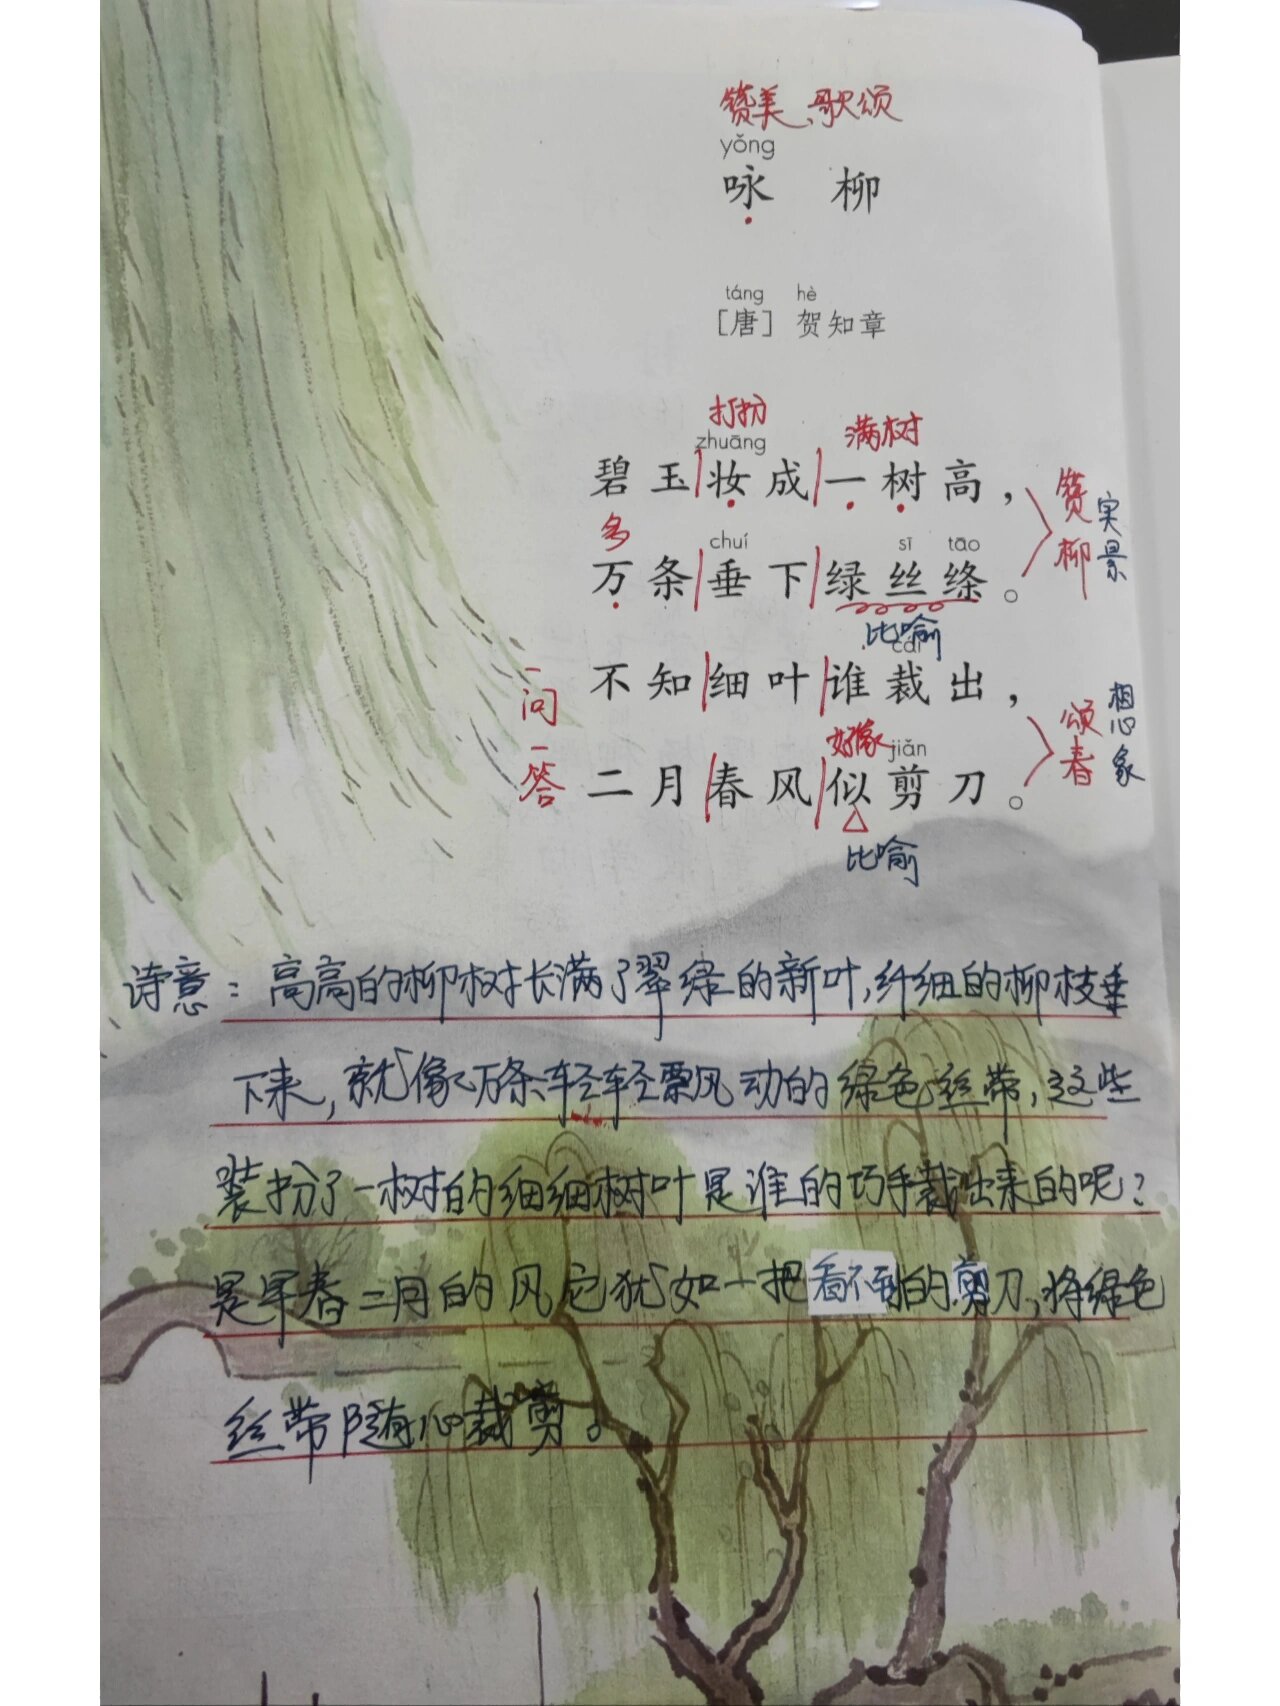 赞美、歌颂
yǒng
咏 柳
táng hè
[唐] 贺知章
打扮 满树
zhuāng
碧玉妆成一树高，
赞柳 实景
多 chuí sī tāo
万条垂下绿丝绦。
比喻
cái
一问 不知细叶谁裁出，
颂春 想象
好像 jiǎn
一答 二月春风似剪刀。
比喻
诗意：高高的柳树长满了翠绿的新叶,纤细的柳枝垂
下来,就像万条轻轻飘动的绿色丝带,这些
装扮了一树的细细树叶是谁的巧手裁出来的呢?
是早春二月的风它犹如一把看不到的剪刀,将绿色
丝带随心裁剪。